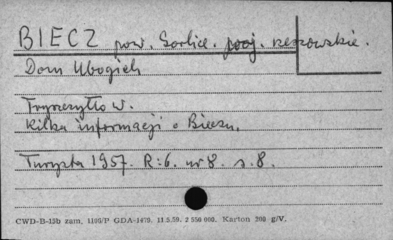 BIECZ pow. Gorlice. woj. rzeszowskie.
Dom Ubogich
Tryszczyłło W.
Kilka informacji o Bieczu.
Turysta 1957. R:6. nr 8. s. 8.
CWD-B-15b zam. GDA-1479. 11.5.59. 2 550 000. Karton 200 g/V.